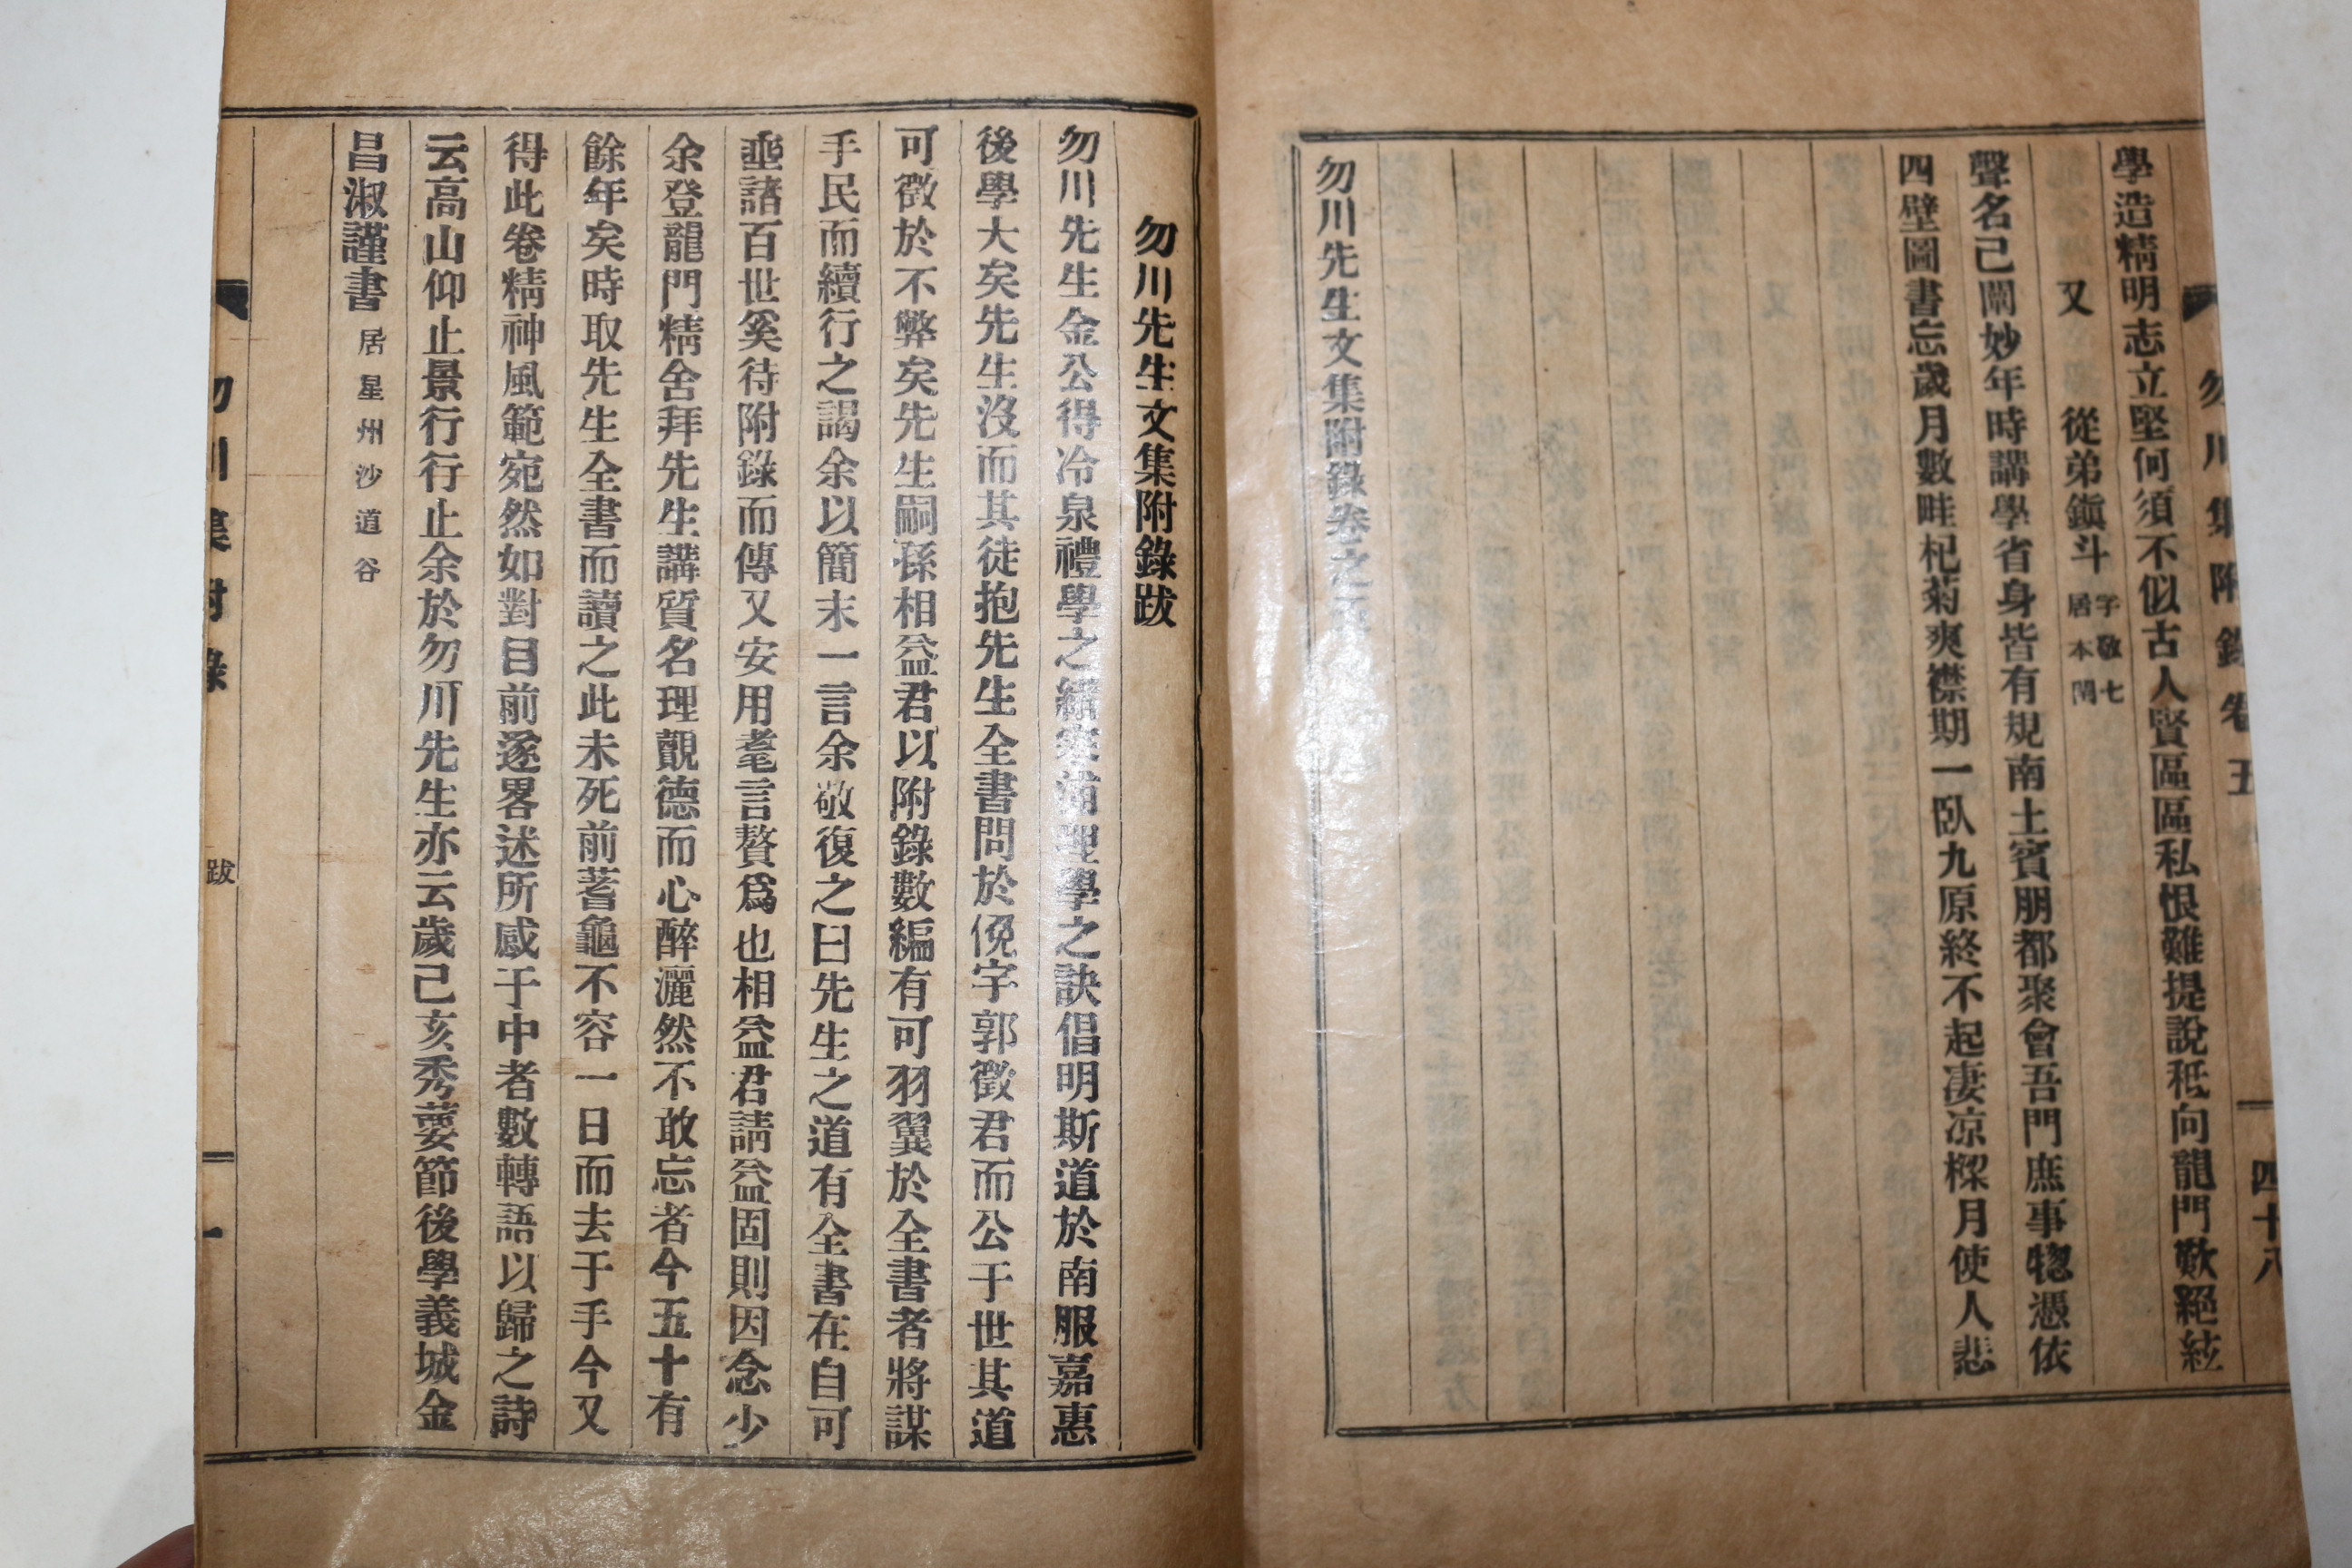 勿川集附錄卷五
四十八
學造精明志立堅何須不似古人賢區區私恨難提說秪向龍門歎絕絃
又 從弟鎭斗 字敬七 居本閈
聲名己閙妙年時講學省身皆有規南土賓朋都聚會吾門庶事惣憑依
四壁圖書忘歲月數畦杞菊爽襟期一臥九原終不起凄凉樑月使人悲
勿川先生文集附錄卷之
勿川先生文集附錄跋
勿川先生金公得冷泉禮學之緖寒浦理學之訣倡明斯道於南服嘉惠
後學大矣先生沒而其徒抱先生全書問於俛宇郭徵君而公于世其道
可徵於不弊矣先生嗣孫相益君以附錄數編有可羽翼於全書者將謀
手民而續行之謁余以簡末一言余敬復之曰先生之道有全書在自可
埀諸百世奚待附錄而傳又安用耄言贅爲也相益君請益固則因念少
余登龍門精舍拜先生講質名理覿德而心醉灑然不敢忘者今五十有
餘年矣時取先生全書而讀之此未死前蓍龜不容一日而去于手今又
得此卷精神風範宛然如對目前遂畧述所感于中者數轉語以歸之詩
云高山仰止景行行止余於勿川先生亦云歲己亥秀葽節後學義城金
昌淑謹書 居星州沙道谷
勿川集附錄
跋
一